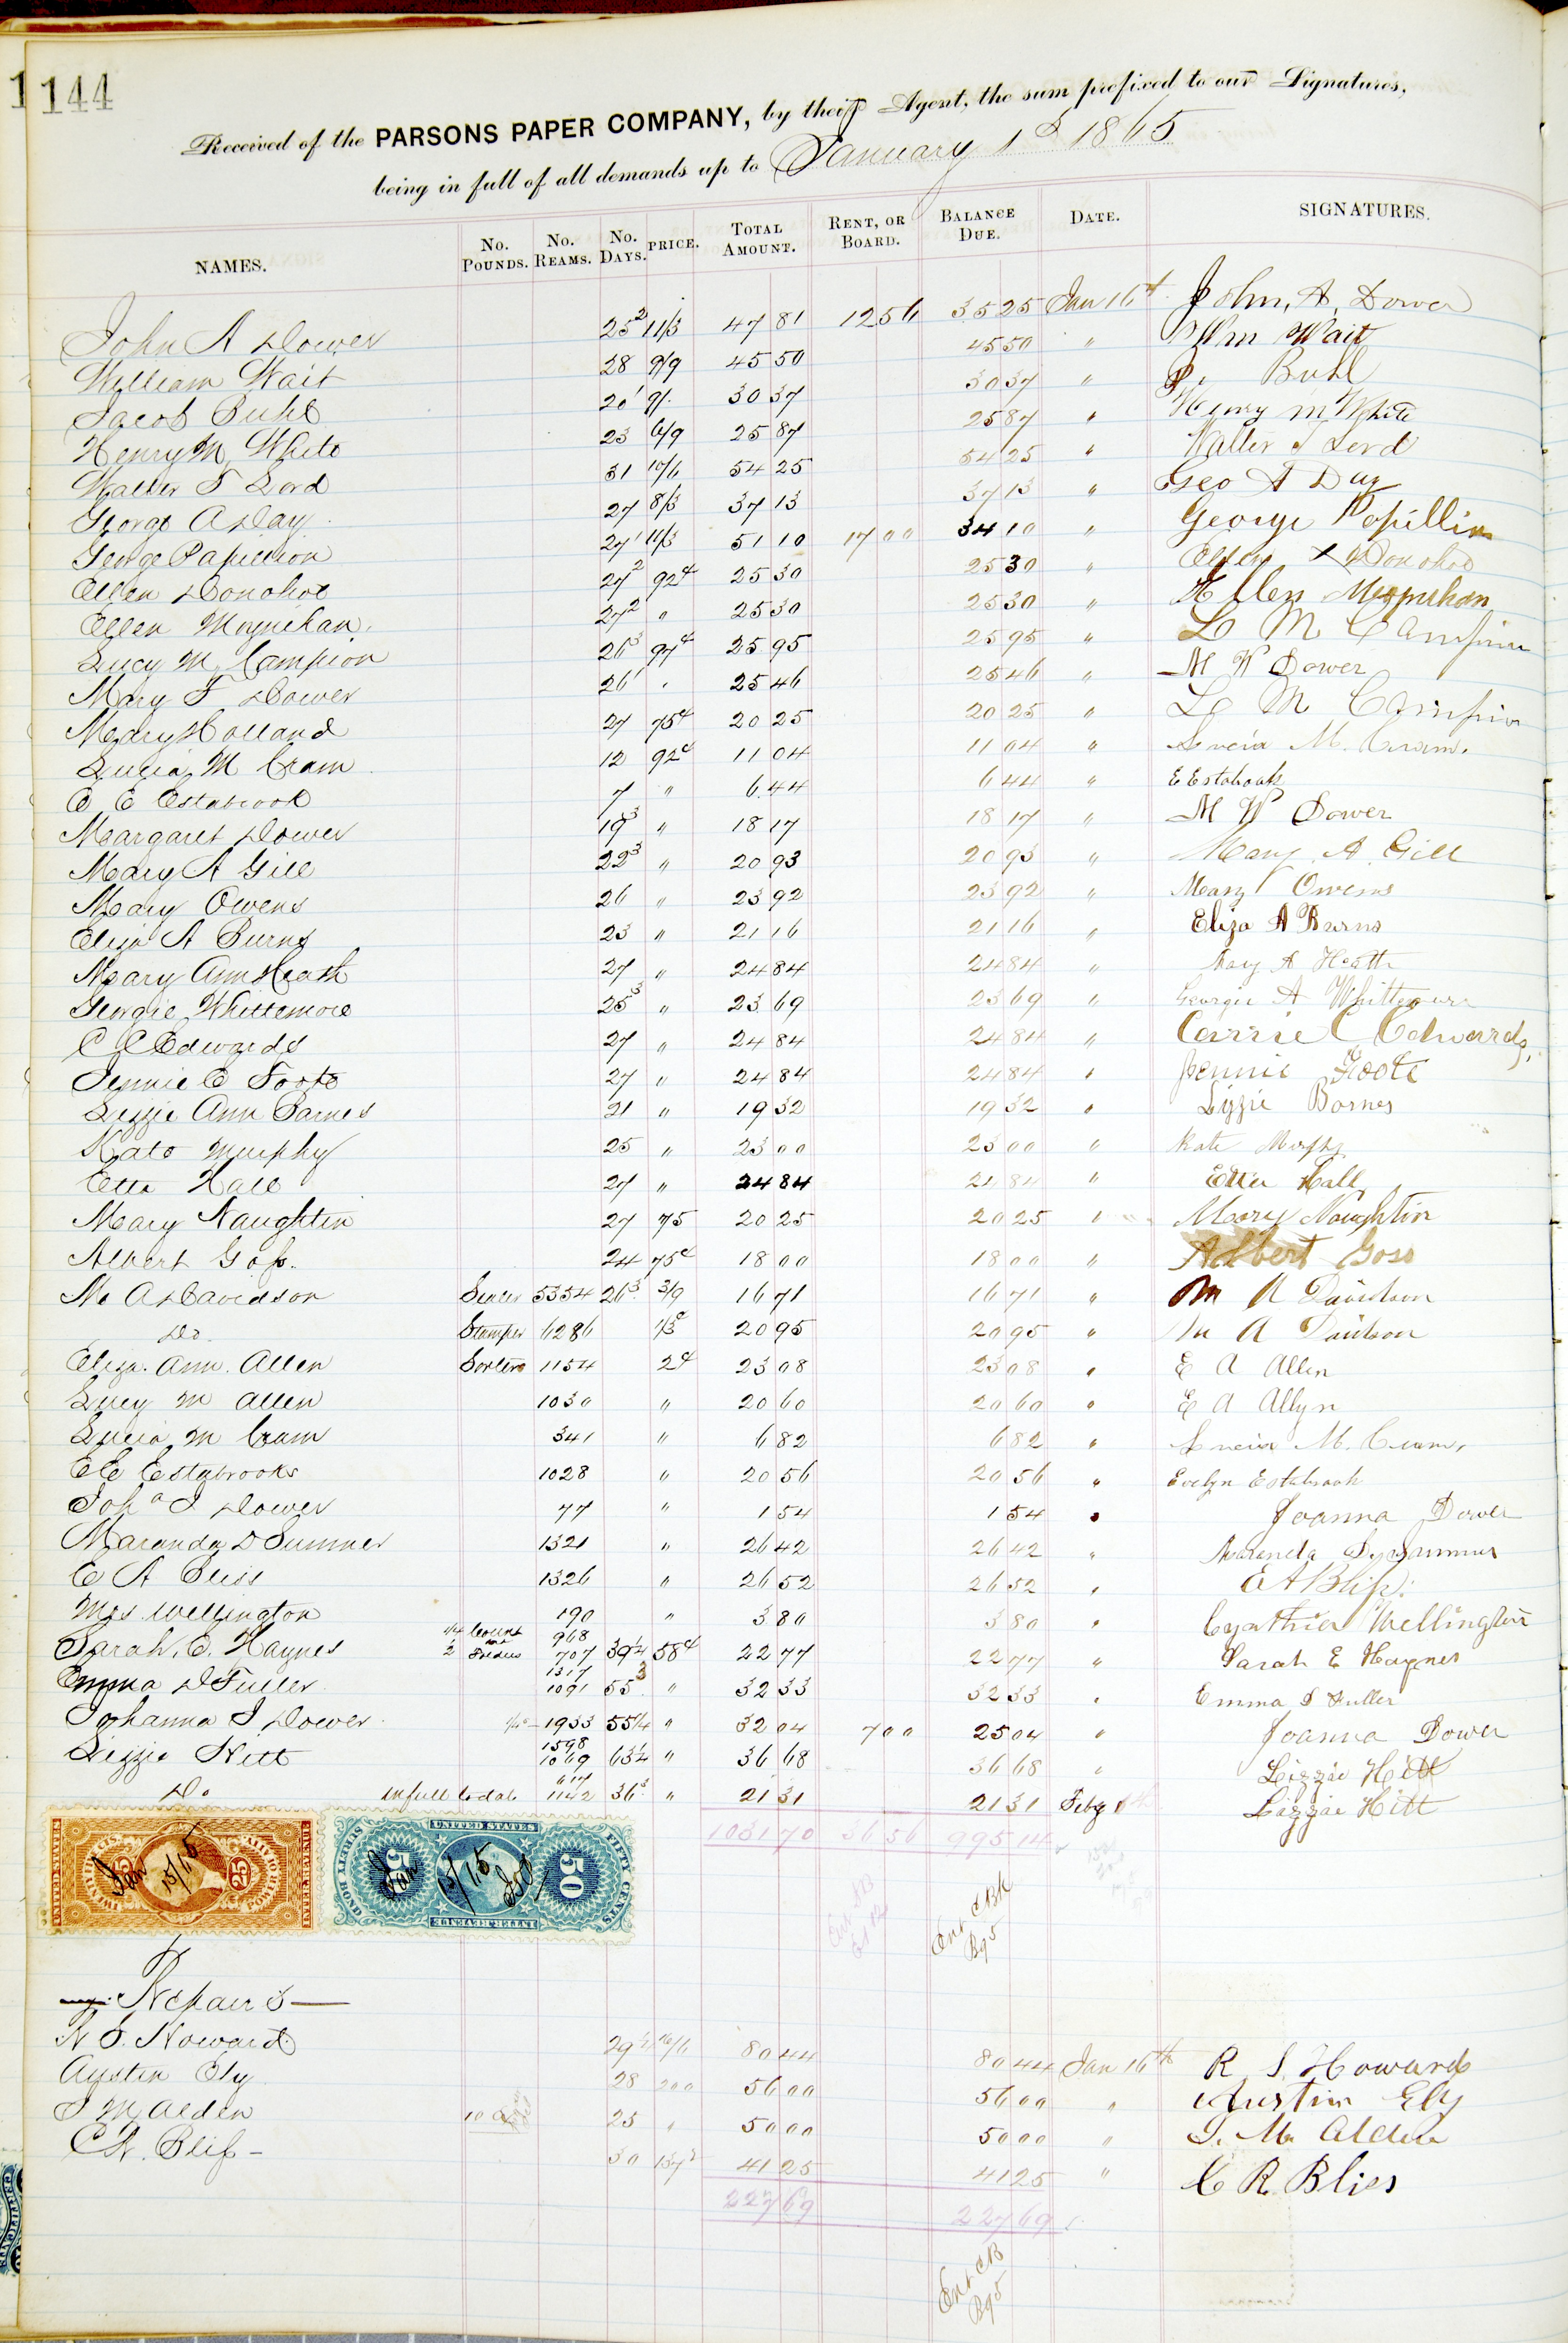 144
Received of the PARSONS PAPER COMPANY, by their Agent, the sum prefixed to our Signatures,
being in full of all demands up to January 1st 1865
NAMES. No. Pounds. No. Reams. No. Days. PRICE. Total Amount. Rent, or Board. Balance Due. Date. SIGNATURES.
John A Dower 25 2 11/3 47 81 12 56 35 25 Jan 16th John, A, Dower
William Wait 28 9/9 45 50 45 50 " Wm Wait
Jacob Buhl 20 1 9/. 30 37 30 37 " Buhl
Henry M White 23 6/9 25 87 25 87 " Henry M White
Walter F Lord 31 10/6 54 25 54 25 " Walter F Lord
George A Day 27 8/3 37 13 37 13 " Geo A Day
George Papillion 27 1 11/3 51 10 17 00 34 10 " George Popillin
Ellen Donohoe 27 2 92¢ 25 30 25 30 " Ellen X Donohoe
Ellen Moynihan 27 2 " 25 30 25 30 " Ellen Moynihan
Lucy M Campion 26 3 97¢ 25 95 25 95 " L M Campion
Mary F Dower 26 1 " 25 46 25 46 " M W Dower
Mary Holland 27 75¢ 20 25 20 25 " L M Campion
Lucia M Cram 12 92¢ 11 04 11 04 " Lucia M. Cram.
E E Estabrook 7 " 6 44 6 44 " E Estabrook
Margaret Dower 19 3 " 18 17 18 17 " M W Dower
Mary A Gill 22 3 " 20 93 20 93 " Mary A Gill
Mary Owens 26 " 23 92 23 92 " Mary Owens
Eliza A Burns 23 " 21 16 21 16 " Eliza A Burns
Mary Ann Heath 27 " 24 84 24 84 " Mary A Heath
Georgie Whittemore 25 3 " 23 69 23 69 " Georgie A Whittemore
C C Edwards 27 " 24 84 24 84 " Carrie C Edwards,
Jennie E Foote 27 " 24 84 24 84 " Jennie Foote
Lizzie Ann Barnes 21 " 19 32 19 32 " Lizzie Barnes
Kate Murphy 25 " 23 00 23 00 " Kate Murphy
Etta Hall 27 " 24 84 24 84 " Etta Hall
Mary Naughtin 27 75 20 25 20 25 " Mary Naughtin
Albert Goss 24 75¢ 18 00 18 00 " Albert Goss
M A Davidson 5354 26 3 3/9 16 71 16 71 " M A Davidson
Do. Stamper 6286 20 95 20 95 " M A Davidson
Eliza Ann Allen 1154 2¢ 23 08 23 08 " E A Allen
Lucy M Allen 1030 " 20 60 20 60 " E A Allyn
Lucia M Cram 341 " 6 82 6 82 " Lucia M. Cram,
E E Estabrooks 1028 " 20 56 20 56 " Evelyn Estabrook
Joh a J Dower 77 " 1 54 1 54 " Joanna Dower
Maranda D Sumner 1321 " 26 42 26 42 " Maranda Sumner
E A Bliss 1326 " 26 52 26 52 " E A Bliss
Mrs Wellington 190 " 3 80 3 80 " Cynthia Wellington
Sarah. E. Haynes 968 707 39 1/4 58¢ 22 77 22 77 " Sarah E Haynes
Emma D Fuller 1317 1091 55 3 " 32 33 32 33 " Emma D Fuller
Johanna J Dower 1933 55 1/4 " 32 04 7 00 25 04 " Joanna Dower
Lizzie Hitt 1598 1069 63 1/4 " 36 68 36 68 " Lizzie Hitt
Do in full to date 1142 36 3 " 21 31 21 31 Feby Lizzie Hitt
1031 70 36 56 995 14
UNITED STATES INTER. REVENUE 25
Jan 15/65
UNITED STATES FIFTY CENTS 50 INTER. REVENUE
Jan 15/65
Ent CBk
Pg 5
Repairs
R S. Howard 80 44 80 44 Jan 16th R S. Howard
Austin Ely 28 200 56 00 56 00 " Austin Ely
J M Alden 25 " 50 00 50 00 " J. M. Alden
C R. Bliss 30 41 25 41 25 " C R Bliss
227 69 227 69
Ent CB
Pg 5